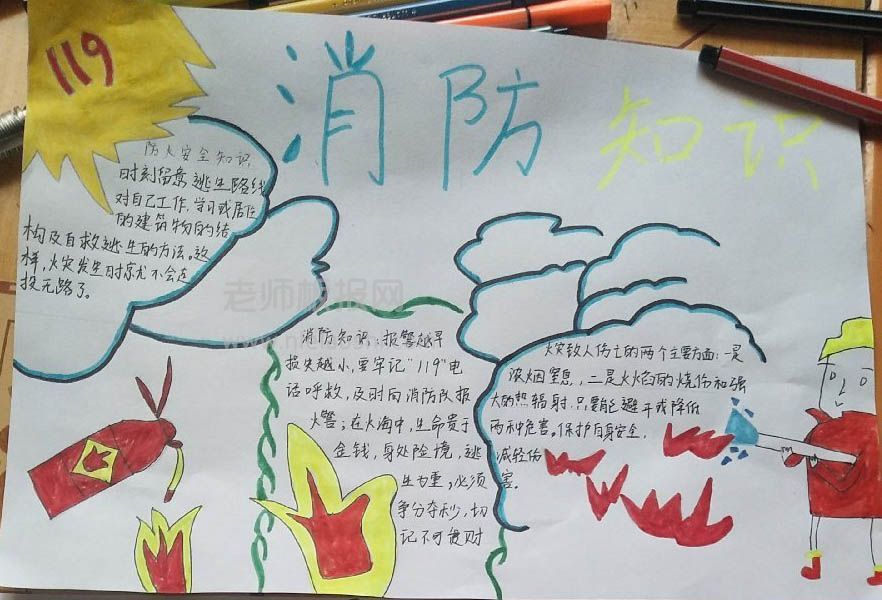 119
消防知识
防火安全知识
时刻留意逃生路线
对自己工作,学习或居住
的建筑物的结
构及自救逃生的方法。这
样,火灾发生时就不会走
投无路了。
老师板报网
消防知识:报警越早
损失越小,要牢记"119"电
话呼救,及时向消防队报
火警;在大海中,生命贵于
金钱,身处险境,逃
生为重,必须
争分夺秒,切
记不可贪财
火灾致人伤亡的两个主要方面:一是
浓烟窒息,二是火焰的烧伤和强
大的热辐射.只要能避开或降低
两种危害。保护自身安全.
减轻伤
害。